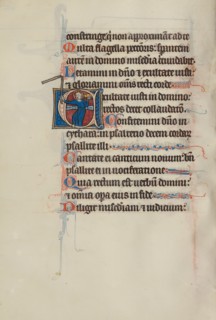 constringe qui non approximant ad te
Multa flagella peccatoris: sperantem
autem in domino misericordia circumdabit.
Letamini in domino et exultate iusti:
et gloriamini omnes recti corde.
Exultate iusti in domino:
rectos decet collaudatio.
Confitemini domino in
cythara: in psalterio decem cordarum
psallite illi.
Cantate ei canticum novum: bene
psallite ei in vociferatione.
Quia rectum est verbum domini:
et omnia opera eius in fide.
Diligit misericordiam et iudicium: